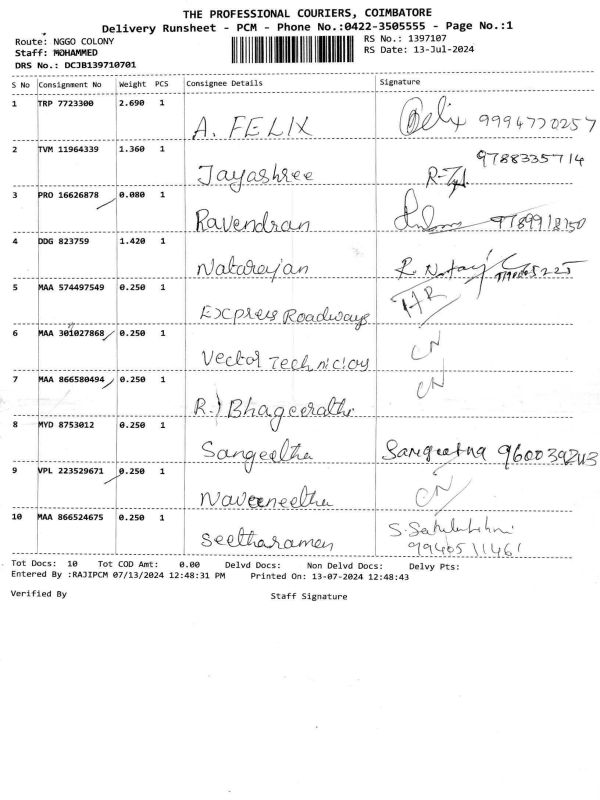 THE PROFESSIONAL COURIERS, COIMBATORE
Delivery Runsheet - PCM - Phone No.:0422-3505555 - Page No.:1
Route: NGGO COLONY RS No.: 1397107
Staff: MOHAMMED RS Date: 13-Jul-2024
DRS No.: DCJB139710701
S No Consignment No Weight PCS Consignee Details Signature
1 TRP 7723300 2.690 1 A. FELIX 9994770257
2 TVM 11964339 1.360 1 Jayashree 9788335714
3 PRO 16626878 0.080 1 Ravendran 9789918150
4 DDG 823759 1.420 1 Natarajan
5 MAA 574497549 0.250 1 Express Roadways
6 MAA 301027868 0.250 1 Vector CN
7 MAA 866580494 0.250 1 R.) Bhageerathi CN
8 MYD 8753012 0.250 1 Sangeetha Sangeetha
9 VPL 223529671 0.250 1 Naveeneetha CN
10 MAA 866524675 0.250 1 Seetharamen 9940511461
Tot Docs: 10 Tot COD Amt: 0.00 Delvd Docs: Non Delvd Docs: Delvy Pts:
Entered By :RAJIPCM 07/13/2024 12:48:31 PM Printed On: 13-07-2024 12:48:43
Verified By Staff Signature